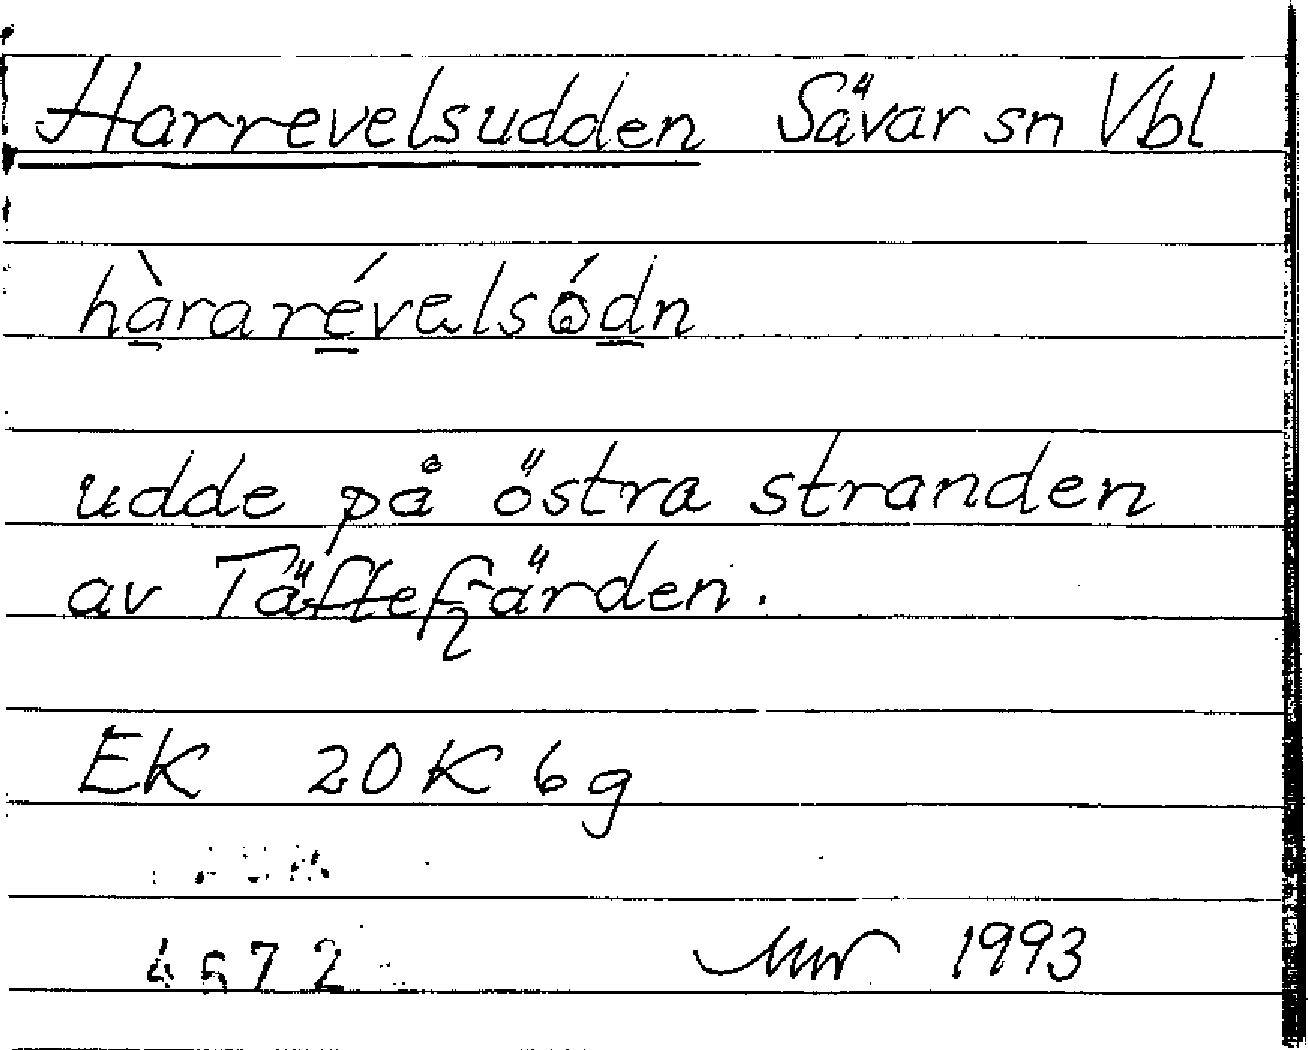 Harrevelsudden Sävar sn Vbl
hàrarévelsódn
udde på östra stranden
av Täftefjärden.
EK 20K6g
4572 1993